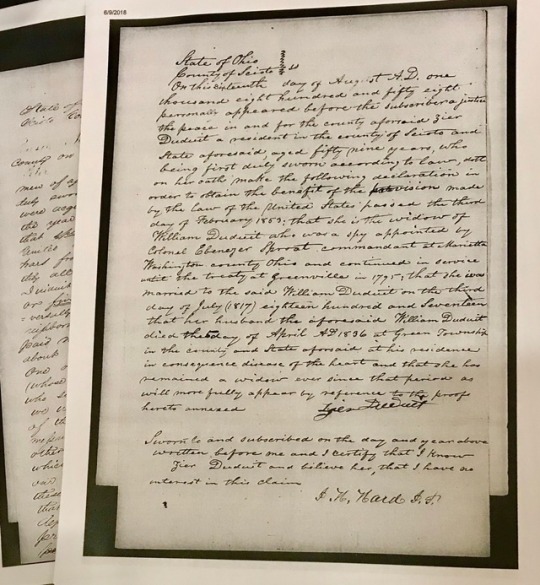 6/9/2018
State of Ohio
County of Scioto } ss
On this sixteenth day of August A.D. one
thousand eight hundred and fifty eight
personally appeared before the subscriber a justice
the peace in and for the county aforesaid Zier
Duduit a resident in the county of Scioto and
State aforesaid, aged fifty nine years, who
being first duly sworn according to law, doth
on her oath make the following declaration in
order to obtain the benefit of the provision made
by the law of the United States passed the third
day of February 1853; that she is the widow of
William Duduit who was a spy appointed by
Colonel Ebenezer Sprout commandant at Marietta
Washington county Ohio and continued in service
until the treaty at Greenville in 1795; that she was
married to the said William Duduit on the third
day of July (1817) eighteen hundred and Seventeen
that her husband the aforesaid William Duduit
died the day of April AD 1836 at Green Township
in the county and State aforesaid at his residence
in consequence disease of the heart and that she has
remained a widow ever since that period as
will more fully appear by reference to the proof
hereto annexed
Zier Duduit
Sworn to and subscribed on the day and year above
written, before me and I certify that I know
Zier Duduit and believe her, that I have no
interest in this claim
Hard J.P.
State of
County
county on
men of
duly
were
the year
that
hars
they all
or
neighbors
paid
about
One
(whose
who
we
of the
other
which
was
these
that